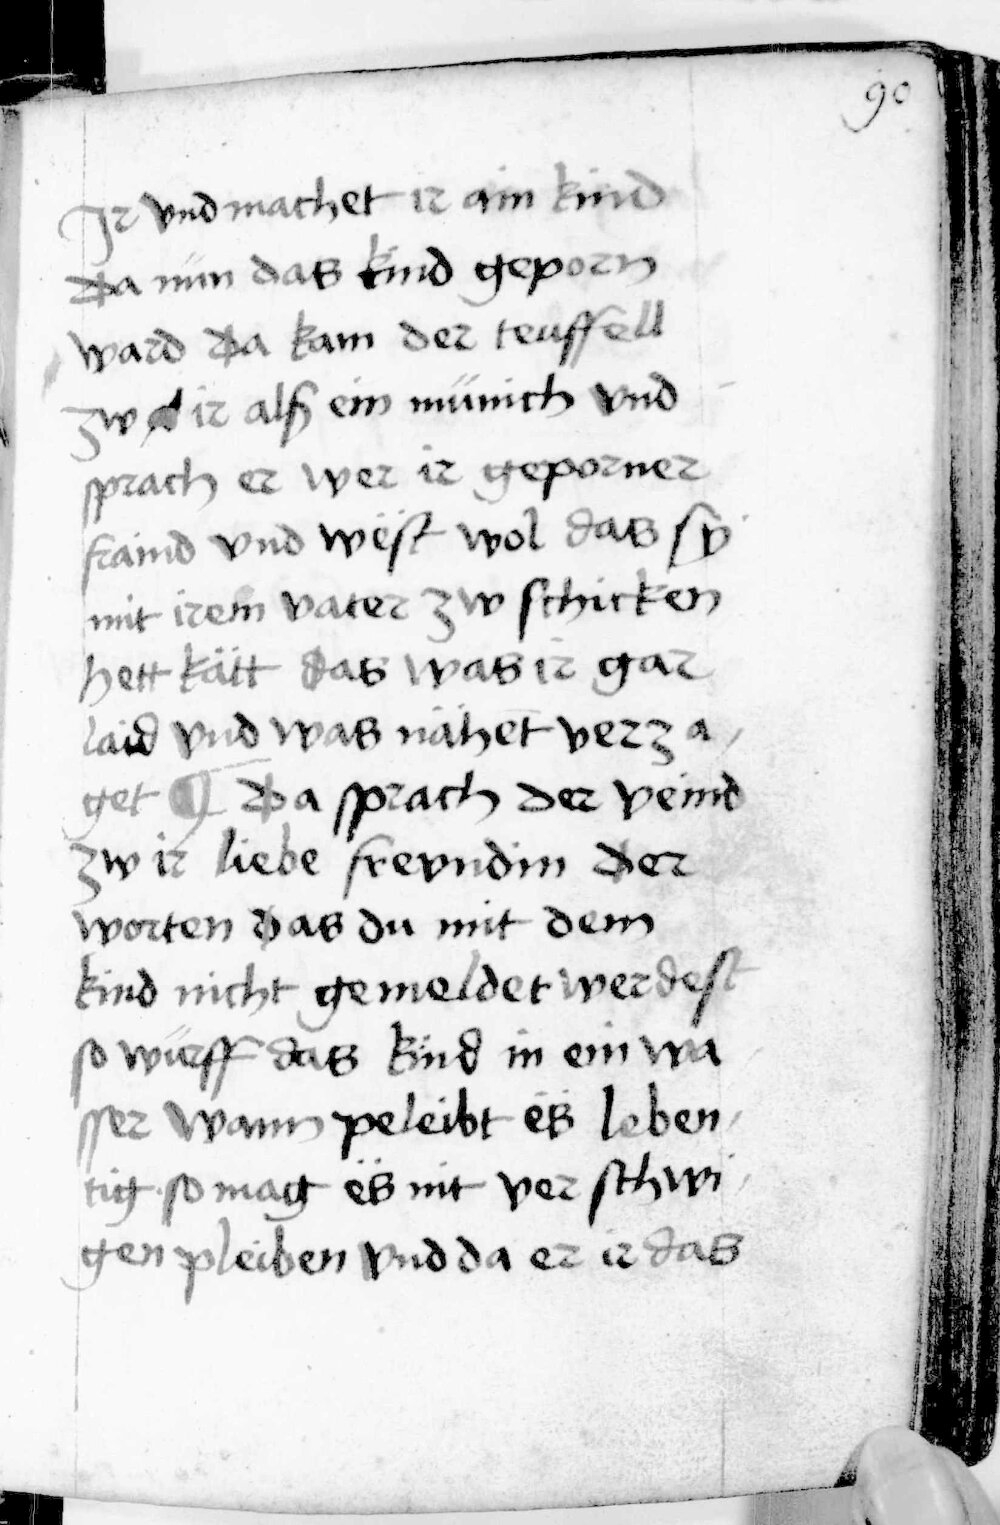 90
Ir vnd machet ir ain kind
Da nün das kind geporn
ward Da kam der teuffell
zw ir alß ein münich vnd
sprach er wer ir geporner
fraind vnd wëst wol das sÿ
mit irem vater zw schicken
hett kätt das was ir gar
laid vnd was nähet verza
get ¶ Da sprach der veind
zw ir liebe frevndin der
worten das du mit dem
kind nicht gemeldet werdest
so würff das kind in ein wa
sser wann peleibt ës leben
tig so mag ës nit ver schwi
gen pleiben vnd da er ir das